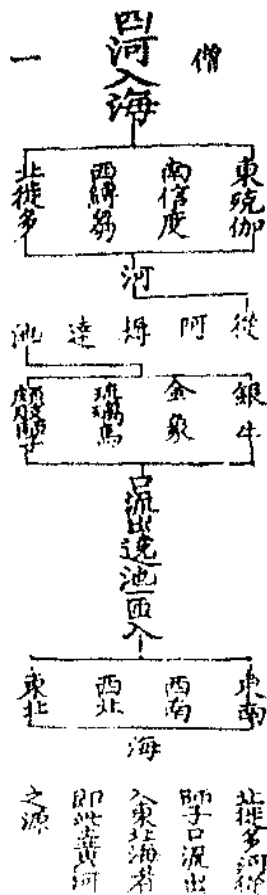 僧
四河入海
一
東殑伽
南信度
西縛芻
北徙多
河
從阿耨達池
銀牛
金象
瑠璃馬
口流出遶池一匝入
東南
西南
西北
東北
海
北徙多河從
師子口流出
入東北海者
即此黃河
之源